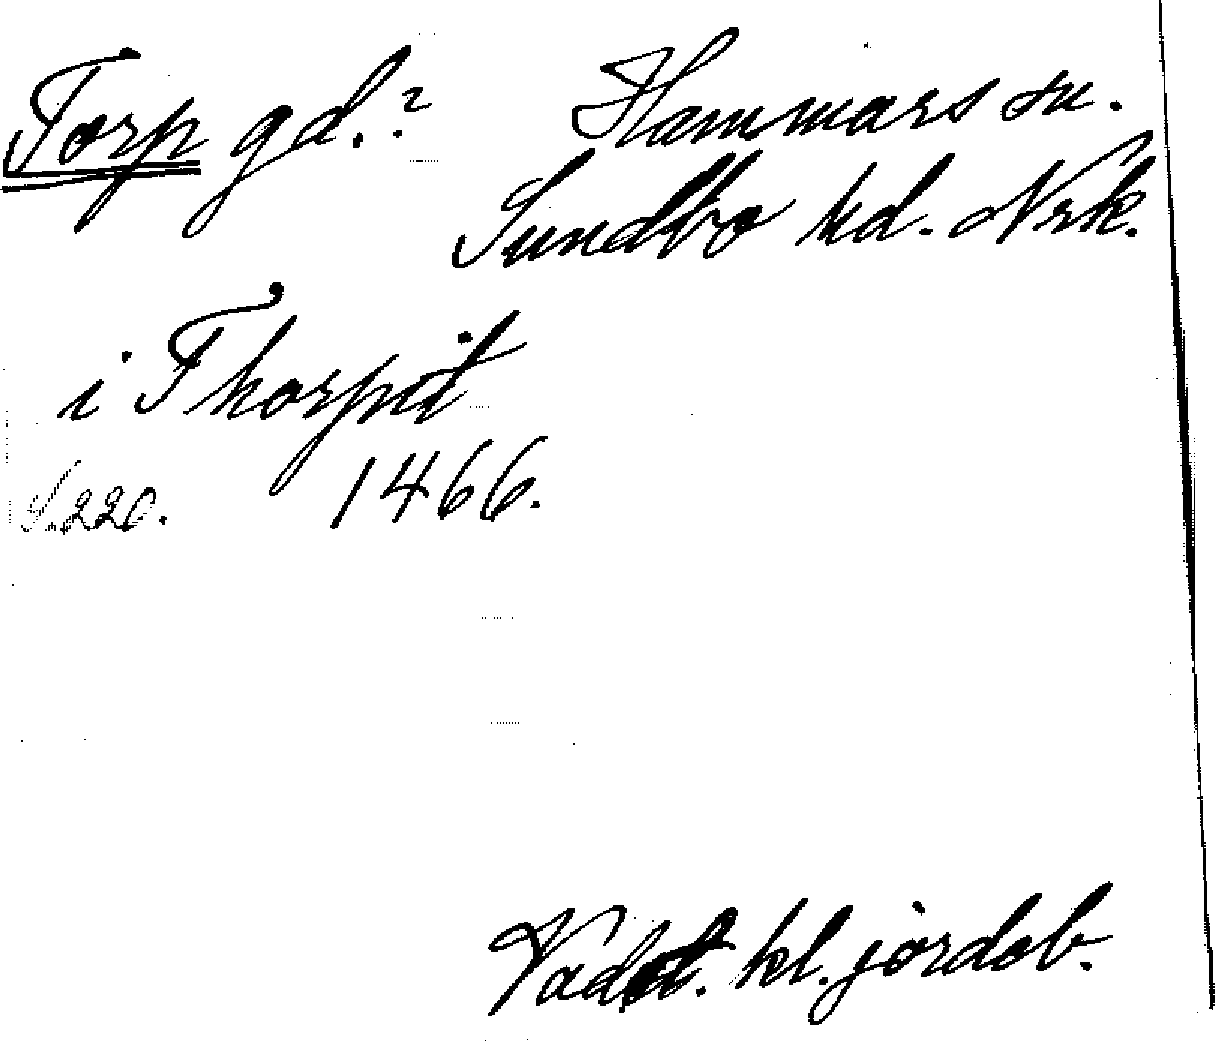 Torp gd.? Hammars sn.
Sundbo hd. Nrk.
i Thorpit
S. 220. 1466.
Vadst. kl. jordeb.